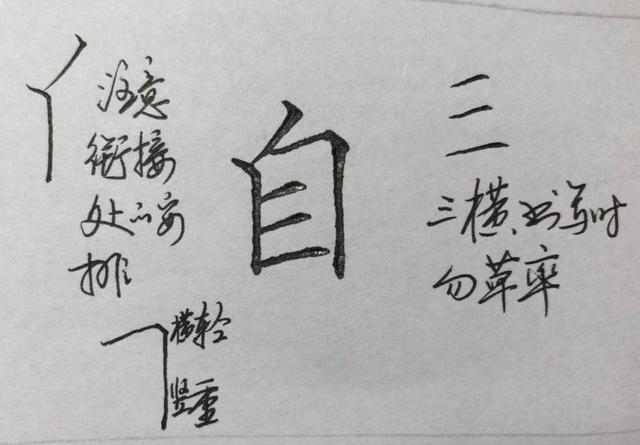 注意
衔接
处的安
排
自
三
三横书写时
勿草率
横轻
竖重